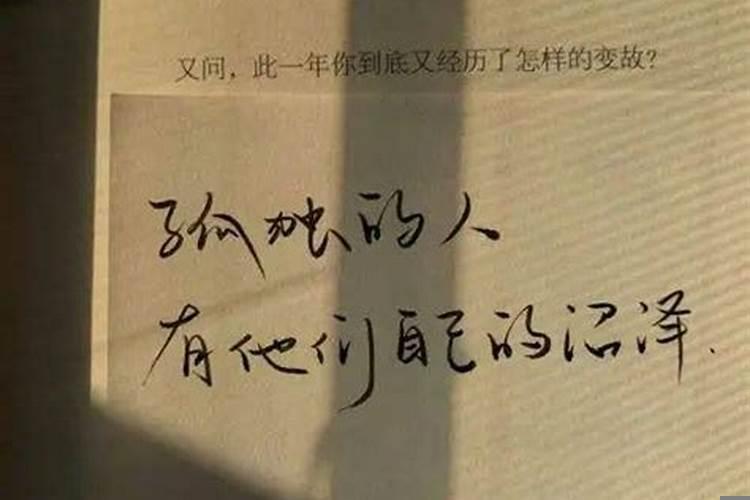 又问，此一年你到底又经历了怎样的变故?
孤独的人
有他们自己的沼泽.